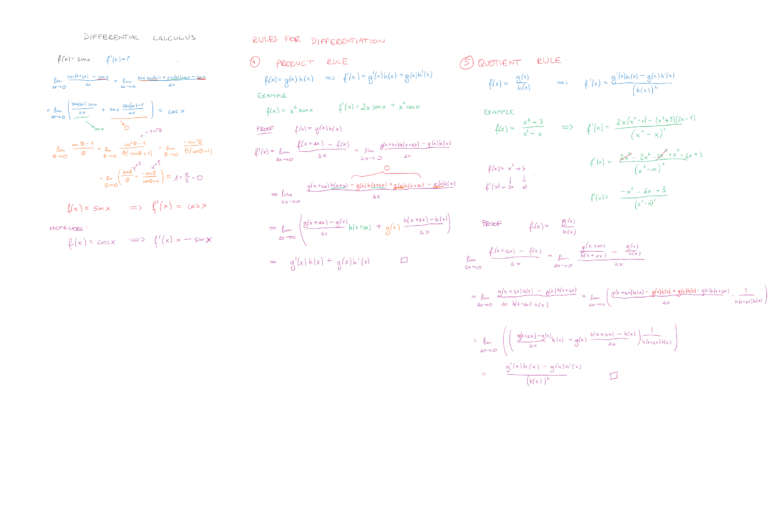 DIFFERENTIAL CALCULUS
f(x) = sin x    f'(x) = ?
lim Δx→0 (sin(x+Δx) − sin x)/Δx = lim Δx→0
= lim Δx→0 = cos x
cos x    0
lim θ→0 (cos θ − 1)/θ = lim θ→0 (cos²θ − 1)/(θ(cos θ + 1)) = lim θ→0 −sin²θ/(θ(cos θ + 1))
f(x) = sin x ⟹ f'(x) = cos x
HOMEWORK:
f(x) = cos x ⟹ f'(x) = − sin x
RULES FOR DIFFERENTIATION
④ PRODUCT RULE
f(x) = g(x) h(x) ⟹ f'(x) = g'(x) h(x) + g(x) h'(x)
EXAMPLE
f(x) = x² sin x    f'(x) = 2x sin x + x² cos x
PROOF    f(x) = g(x) h(x)
f'(x) = lim Δx→0 (f(x+Δx) − f(x))/Δx = lim Δx→0 (g(x+Δx) h(x+Δx) − g(x) h(x))/Δx
0
= lim Δx→0 (g(x+Δx) h(x+Δx) − g(x) h(x+Δx) + g(x) h(x+Δx) − g(x) h(x))/Δx
= lim Δx→0 ( (g(x+Δx) − g(x))/Δx h(x+Δx) + g(x) (h(x+Δx) − h(x))/Δx )
= g'(x) h(x) + g(x) h'(x) □
⑤ QUOTIENT RULE
f(x) = g(x)/h(x) ⟹ f'(x) = (g'(x) h(x) − g(x) h'(x))/(h(x))²
EXAMPLE
f(x) = (x² + 3)/(x² − x) ⟹ f'(x) = (2x(x² − x) − (x² + 3)(2x − 1))/(x² − x)²
f(x) = x² + 3
f'(x) = 2x    0
f'(x) =
f'(x) = (−x² − 6x + 3)/(x² − x)²
PROOF    f(x) = g(x)/h(x)
lim Δx→0 (f(x+Δx) − f(x))/Δx = lim Δx→0 (g(x+Δx)/h(x+Δx) − g(x)/h(x))/Δx
= lim Δx→0 (g(x+Δx) h(x) − g(x) h(x+Δx))/(Δx h(x+Δx) h(x)) = lim Δx→0 ( (g(x+Δx) h(x) − g(x) h(x) + g(x) h(x) − g(x) h(x+Δx))/Δx · 1/(h(x+Δx) h(x)) )
= lim Δx→0 ( ( (g(x+Δx) − g(x))/Δx h(x) − g(x) (h(x+Δx) − h(x))/Δx ) 1/(h(x+Δx) h(x)) )
= (g'(x) h(x) − g(x) h'(x))/(h(x))² □